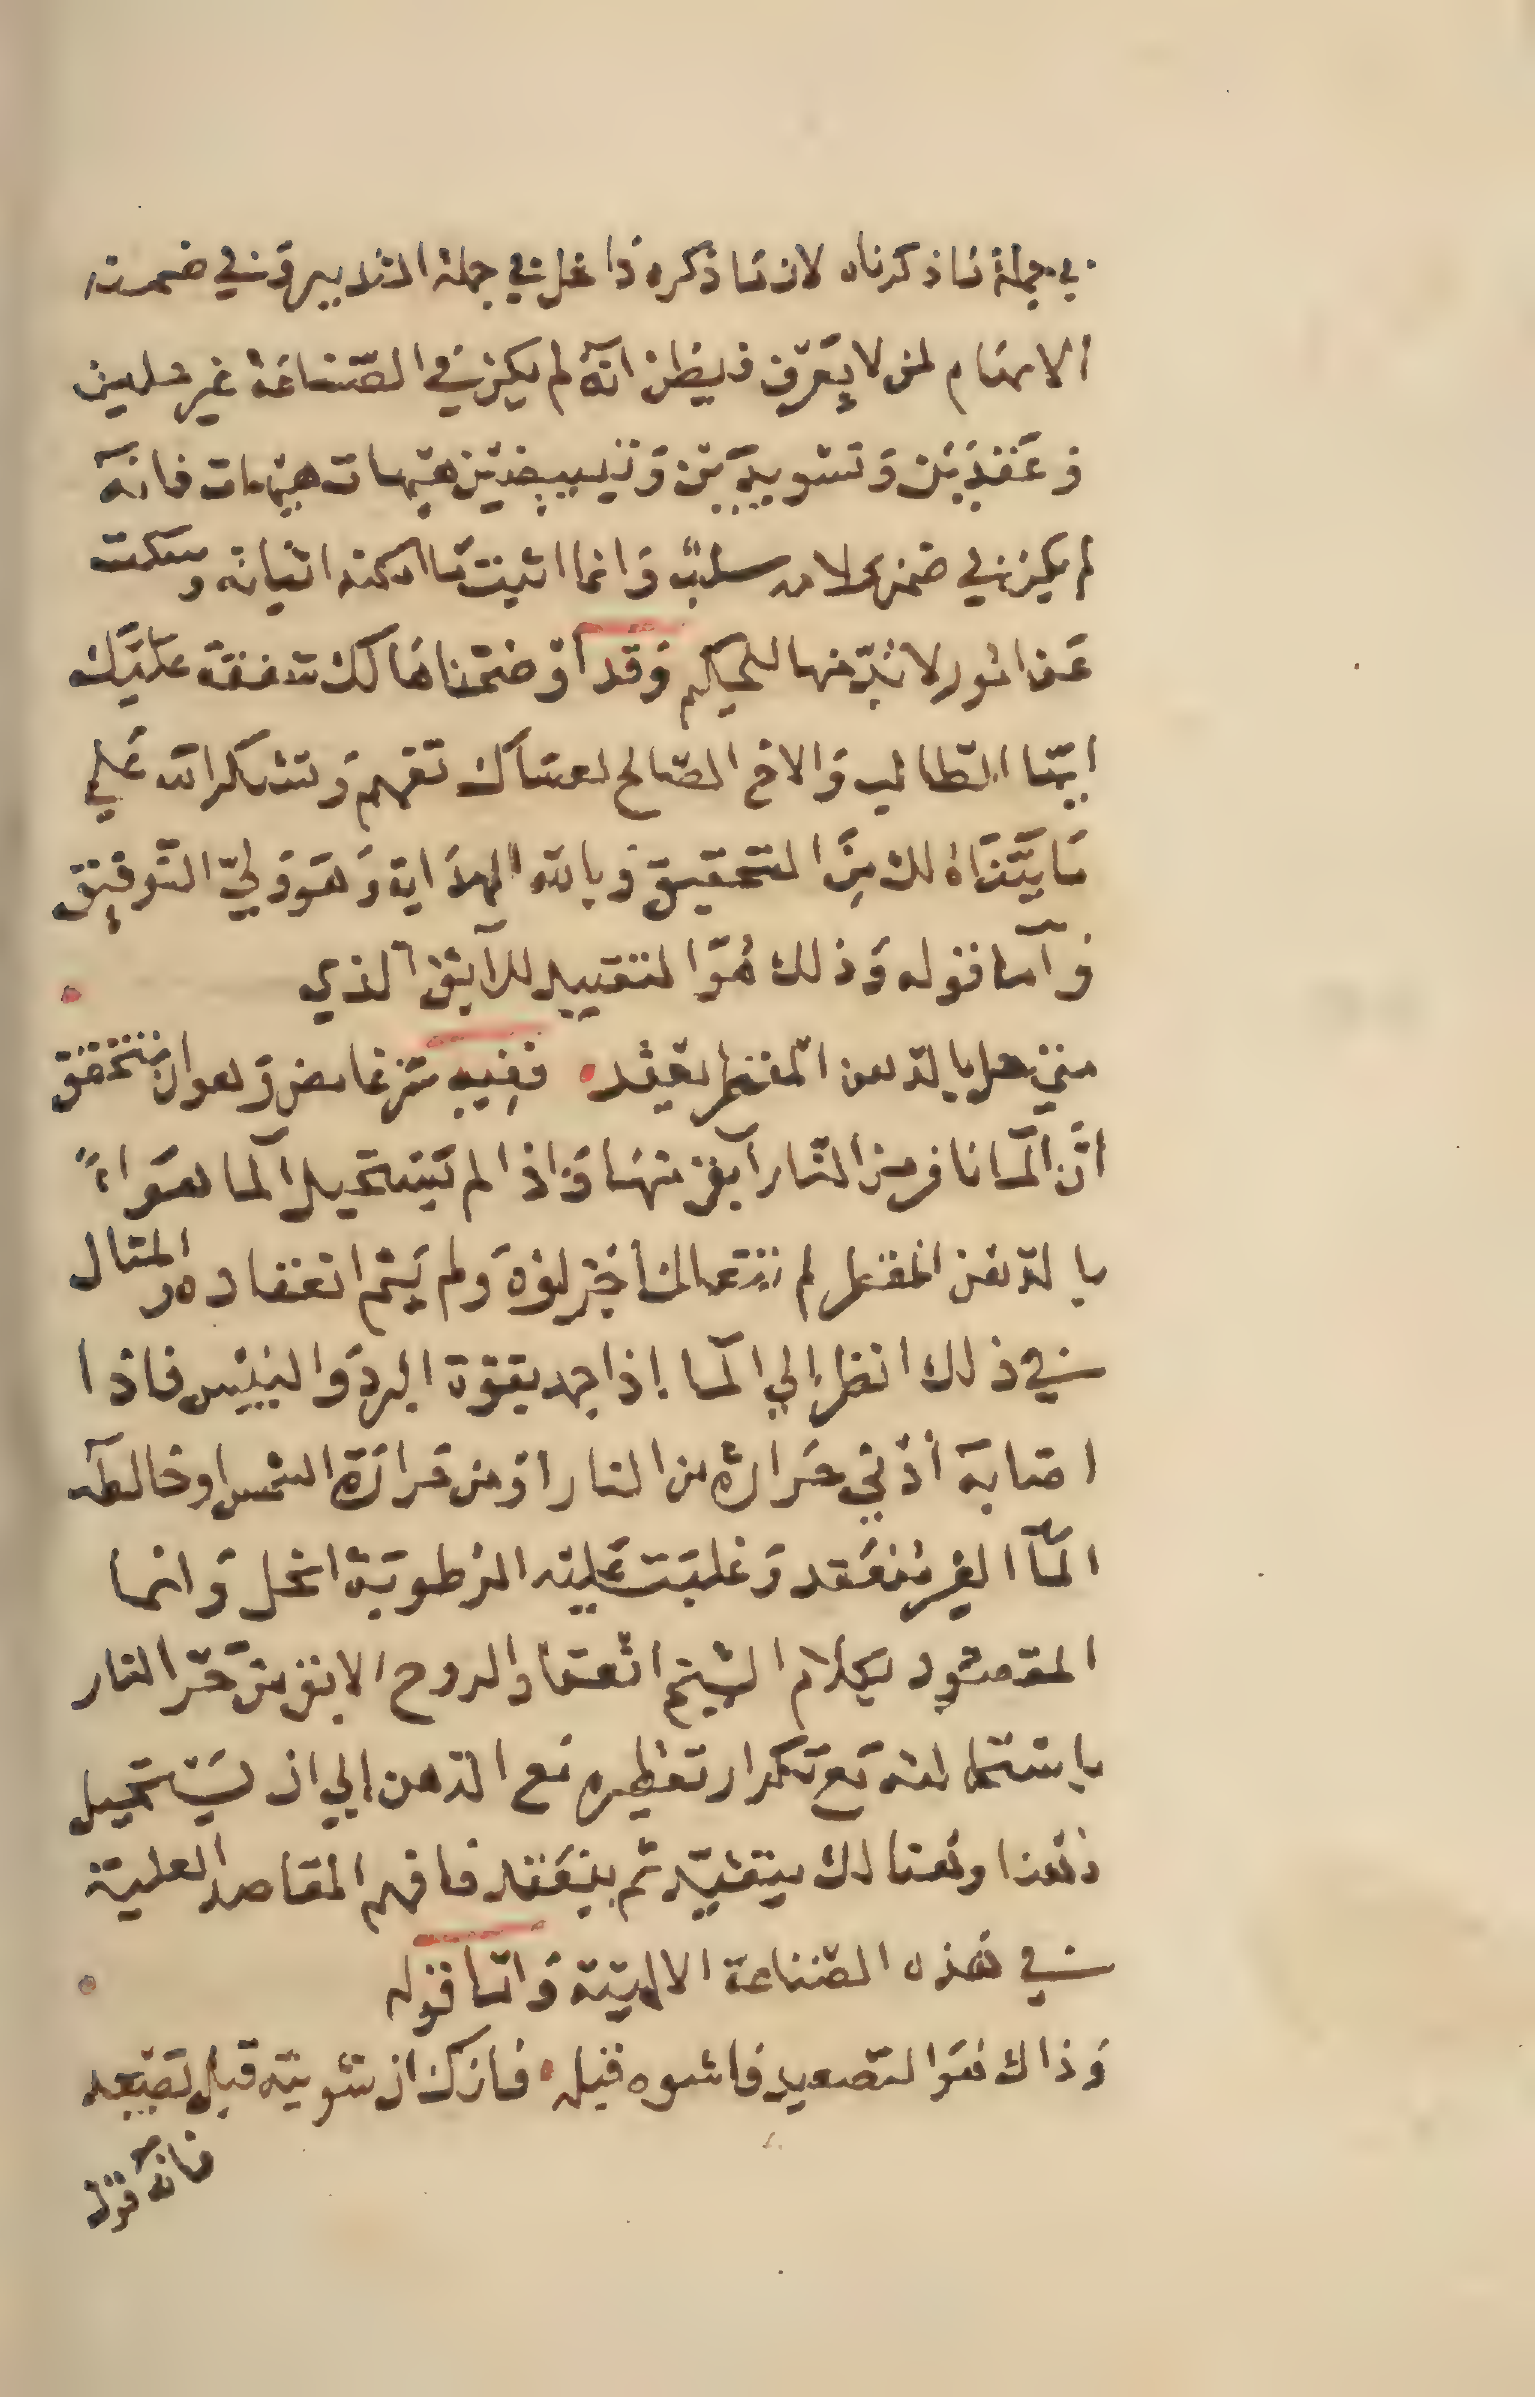 في جملة ما ذكرناه لان ما ذكره داخل في جملة التدابير وفي ضمنه
الابهام لمن لا يعرف فيظن انه لم يكن في الصناعة غير حلين
وعقدين وتسويدين وتبييضين هيهات هيهات فانه
لم يكن في ضمن كلامه سلب وانما اثبت ما امكنه اثباته وسكت
عن امور لا بد منها للحكيم وقد اوضحناها لك شفقة عليك
ايها الطالب والاخ الصالح لعساك تفهم وتشكر الله على
ما بيناه لك من التحقيق وبالله الهداية وهو ولي التوفيق
واما قوله وذلك هو التقييد للآبق الذي
متى حل بالدهن المقطر يعقد ففيه سر غامض وهو ان تتحقق
ان الما نافر من النار آبق منها واذا لم يستحيل الما هواء
بالدهن المقطر لم تتعالى أجزاؤه ولم يتم انعقاده والمثال
في ذلك انظر إلي الما إذا جمد بقوة البرد واليبس فاذا
اصابه أدني حرارة من النار او من حرارة الشمس او خالطه
الما الغير منعقد وغلبت عليه الرطوبة انحل وانما
المقصود بكلام الشيخ انعقاد الروح الابق من حر النار
باستحالته مع تكرار تقطيره مع الدهن إلي ان يستحيل
دهنا وهنالك يتقيد ثم ينعقد فافهم المقاصد العلية
في هذه الصناعة الالهية واما قوله
وذاك هو التصعيد فاشوه قبله فانك ان شويته قبل تصعيد
فانه قوله